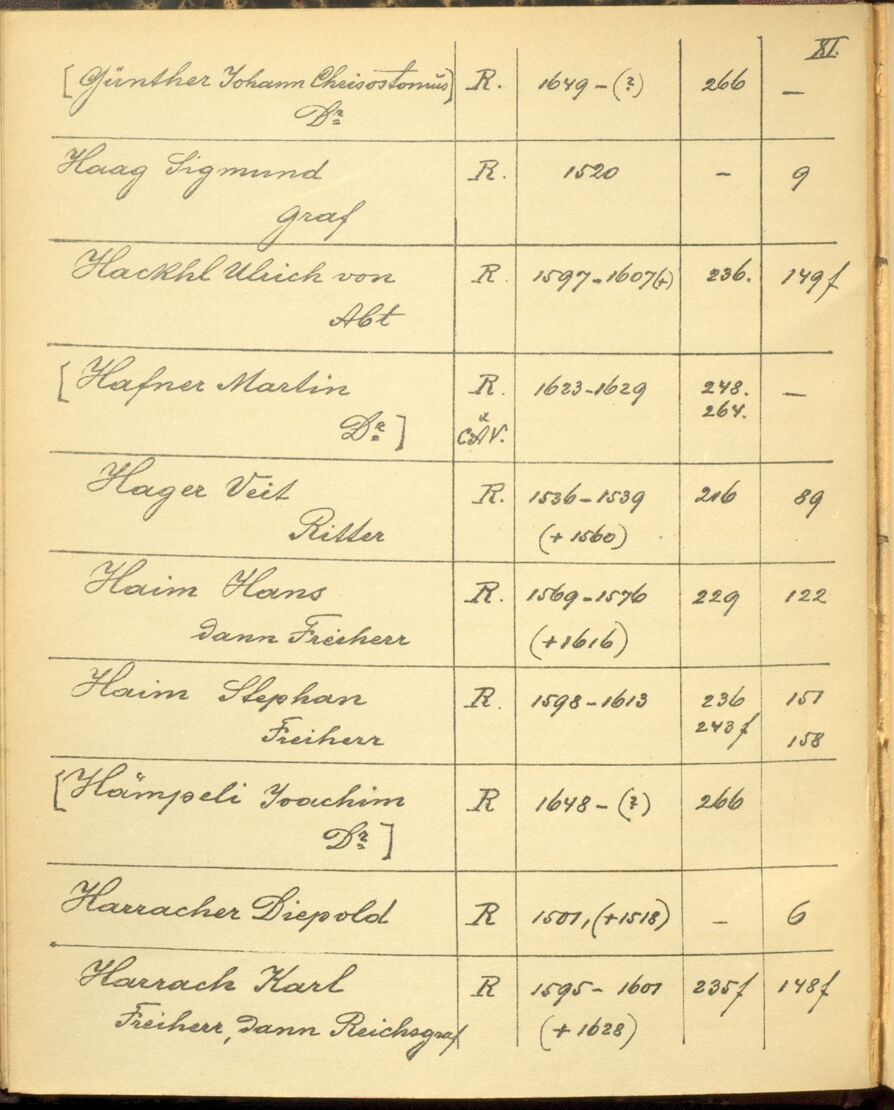 XI.
[Günther Johann Chrisostomus] R. 1649 – (?) 266 –
Dr
Haag Sigmund R. 1520 – 9
Graf
Hackhl Ulrich von R. 1597-1607(+) 236. 149f
Abt
[Hafner Martin R. 1623-1629 248. –
Dr] u 264.
CAV.
Hager Veit R. 1536-1539 216 89
Ritter (+1560)
Haim Hans R. 1569-1576 229 122
dann Freiherr (+1616)
Haim Stephan R. 1598-1613 236 151
Freiherr 243f 158
[Hämpeli Joachim R 1648-(?) 266
Dr]
Harracher Diepold R 1501,(+1518) – 6
Harrach Karl R 1595-1601 235f 148f
Freiherr, dann Reichsgraf (+1628)